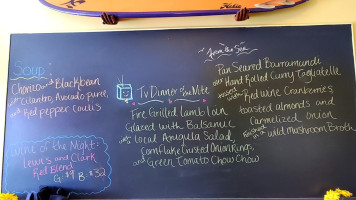 Soup:
Chorizo and Blackbean
with Cilantro, Avocado puree,
and Red pepper Coulis
Wine of the Night:
Lewis and Clark
Red Blend
G: $9 B: $32
TV Dinner
Fire Grilled Lamb Loin
Glazed with Balsamic
with local Arugula Salad,
Cornflake Crusted Onion Rings,
and Green Tomato Chow Chow
from the Sea
Pan Seared Barramundi
over Hand Rolled Curry Tagliatelle
Red Wine Cranberries
toasted almonds and
Carmelized onion
finished in wild mushroom Broth